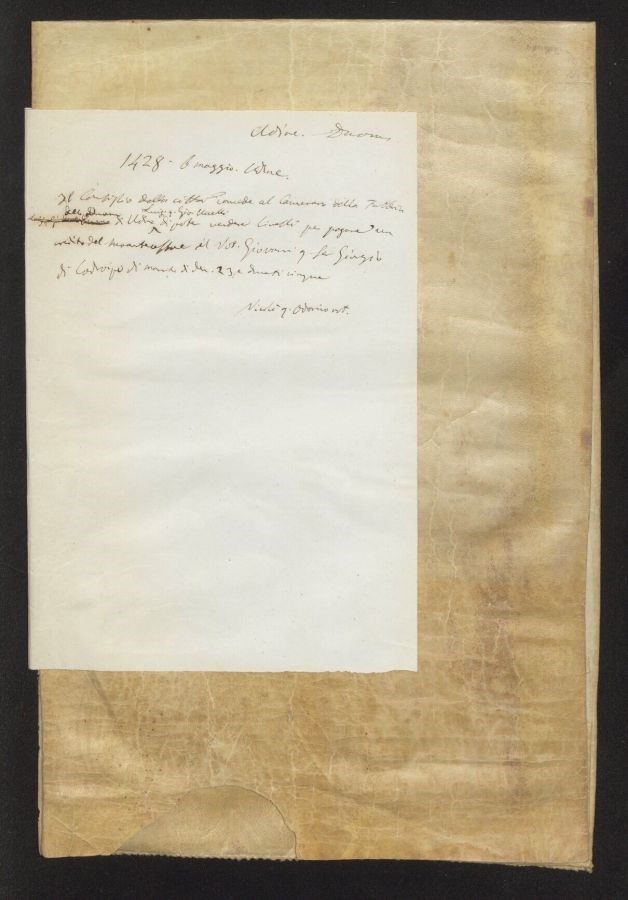 Udine. Duomo
1428 - 6 maggio. Udine.
Il Consiglio della città concede al Cameraro della Fabbrica
del Duomo di Udine Luigi q. Gio di poter vendere livelli per pagare un
credito del al Not. Giovanni q. Ser Giorgio
di Codroipo di marche di den. 23 e ducati cinque
Nicolò q. Odorico not.